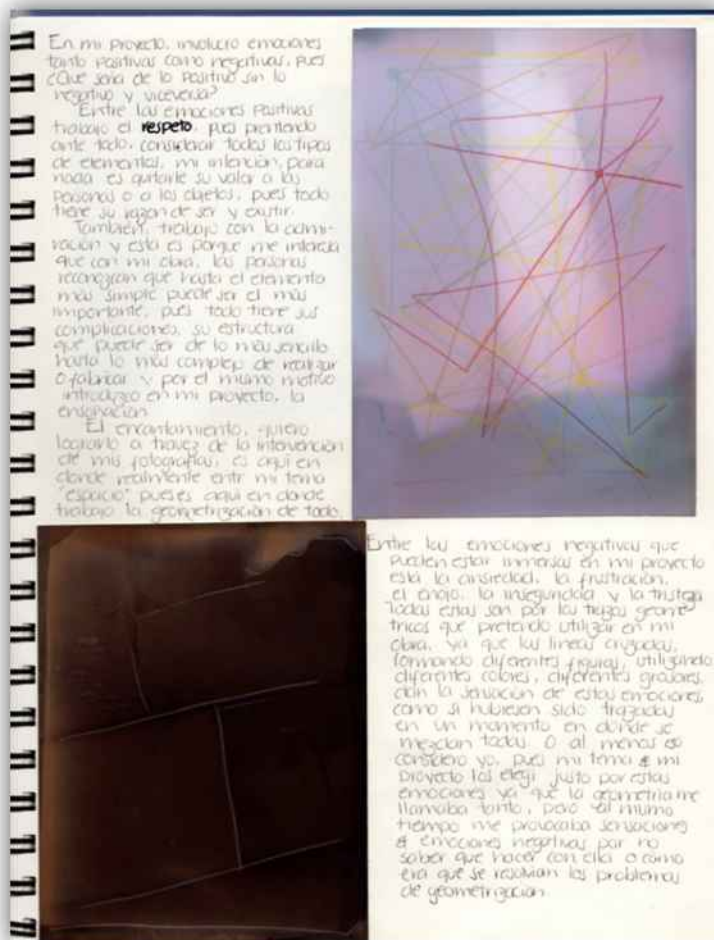 En mi proyecto, involucro emociones
tanto positivas como negativas, pues
¿Qué sería de lo positivo sin lo
negativo y viceversa?
Entre las emociones Positivas
trabajo el respeto, pues pretendo
ante todo, considerar todos los tipos
de elementos, mi intención, para
nada es quitarle su valor a las
personas o a los objetos, pues todo
tiene su razon de ser y existir.
También, trabajo con la admi-
ración y esta es porque me interesa
que con mi obra, las personas
reconozcan que hasta el elemento
más simple puede ser el más
importante, pues todo tiene sus
complicaciones, su estructura
que puede ser de lo más sencillo
hasta lo más complejo de realizar
o fabricar y por el mismo motivo
introduzco en mi proyecto, la
ensoñación.
El encantamiento, quiero
lograrlo a travez de la intervención
de mis fotografías, es aquí en
donde realmente entr mi tema
"espacio" pues es aquí en donde
trabajo la geometrización de todo.
Entre las emociones negativas que
pueden estar inmersas en mi proyecto
está la ansiedad, la frustración,
el enojo, la inseguridad y la tristeza
todas estas son por los trazos geome
tricos que pretendo utilizar en mi
obra, ya que las lineas cruzadas,
formando diferentes figuras, utilizando
diferentes colores, diferentes grosores,
dan la sensación de estas emociones
como si hubiesen sido trazadas
en un momento en donde se
mezclan todas. O al menos eso
considero yo, pues mi tema & mi
proyecto los elegí justo por estas
emociones ya que la geometria me
llamaba tanto, pero al mismo
tiempo me provocaba sensaciones
& emociones negativas por no
saber que hacer con ella o como
era que se resolvian los problemas
de geometrización.